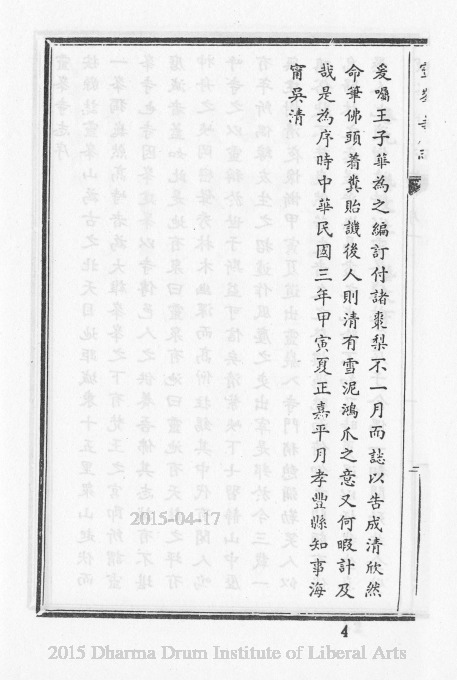 爰囑王子華為之編訂付諸棗梨不一月而誌以告成清欣然
命筆佛頭着糞貽譏後人則清有雪泥鴻爪之意又何暇計及
哉是為序時中華民國三年甲寅夏正嘉平月孝豐縣知事海
甯吳清
2015-04-17
4
2015 Dharma Drum Institute of Liberal Arts